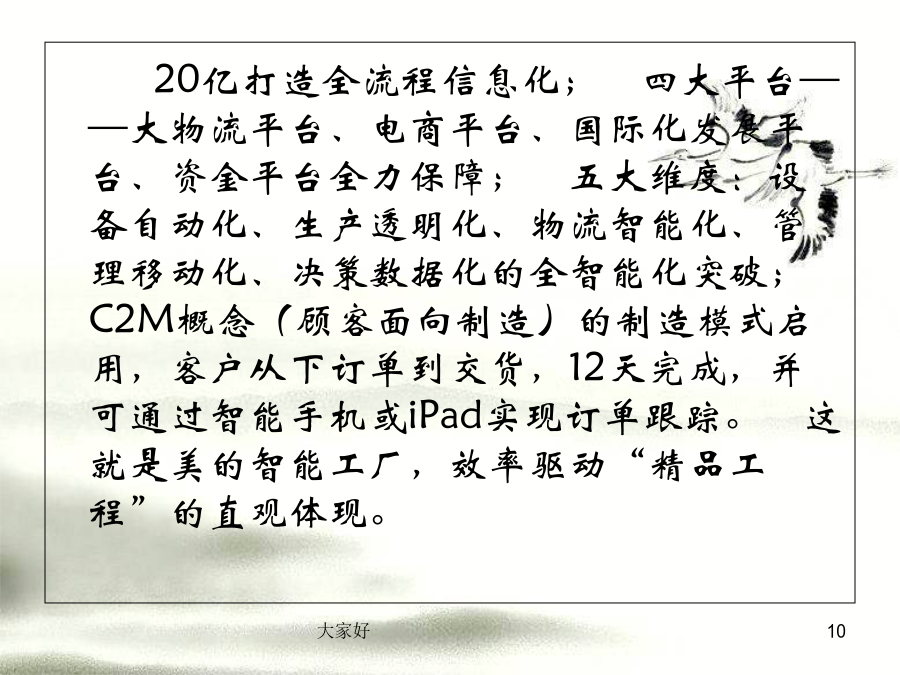 20亿打造全流程信息化；　四大平台—
—大物流平台、电商平台、国际化发展平
台、资金平台全力保障；　五大维度：设
备自动化、生产透明化、物流智能化、管
理移动化、决策数据化的全智能化突破；
C2M概念（顾客面向制造）的制造模式启
用，客户从下订单到交货，12天完成，并
可通过智能手机或iPad实现订单跟踪。　这
就是美的智能工厂，效率驱动“精品工
程”的直观体现。
大家好
10